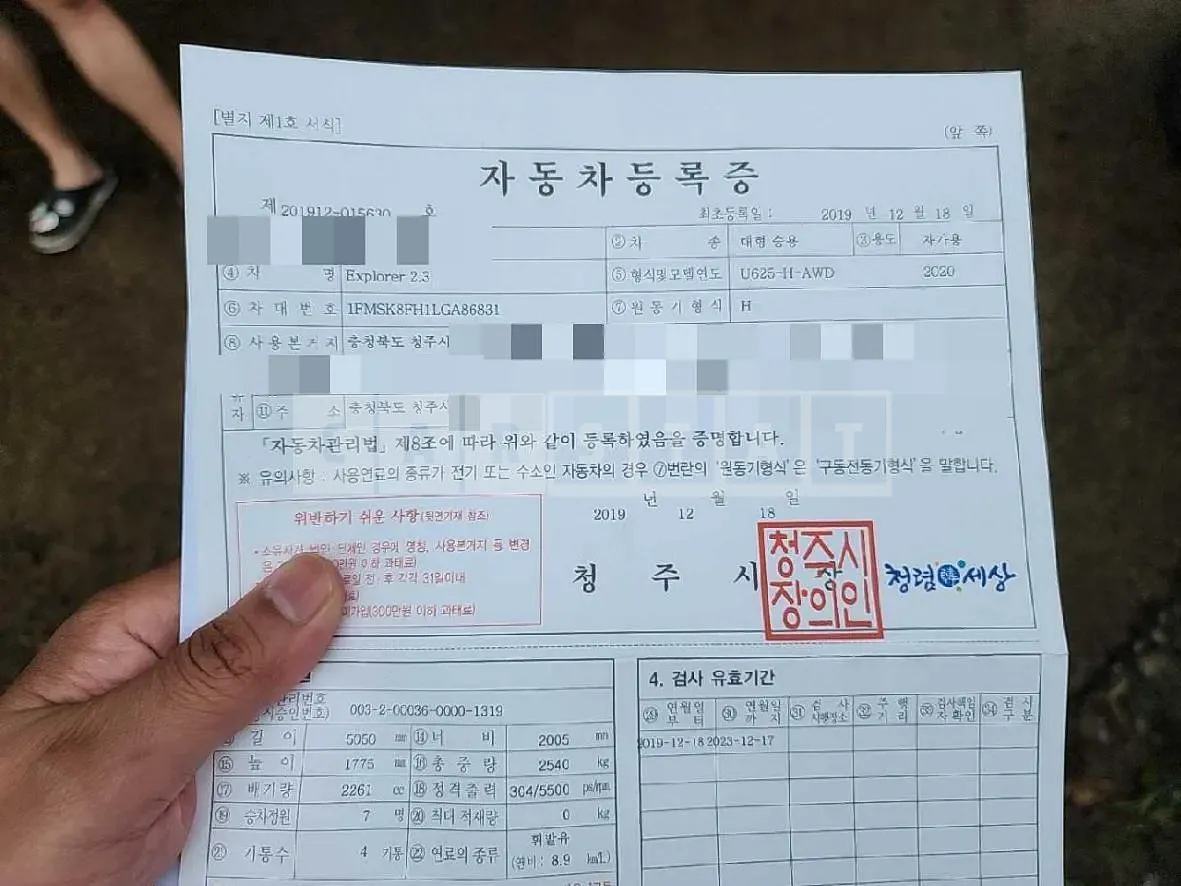 [별지 제1호 서식]
(앞 쪽)
자동차등록증
제 201912-015630 호
최초등록일 : 2019 년 12 월 18 일
②차 종 대형 승용 ③용도 자가용
④ 차 명 Explorer 2.3 ⑤형식및모델연도 U625-H-AWD 2020
⑥ 차 대 번 호 1FMSK8FH1LGA86831 ⑦원 동 기 형 식 H
⑧ 사 용 본 거 지 충청북도 청주시
자 ⑪주 소 충청북도 청주시
「자동차관리법」 제8조에 따라 위와 같이 등록하였음을 증명합니다.
※ 유의사항 : 사용연료의 종류가 전기 또는 수소인 자동차의 경우 ⑦번란의 '원동기형식'은 '구동전동기형식'을 말합니다.
년 월 일
2019 12 18
위반하기 쉬운 사항(뒷면기재 참조)
• 소유자가 법인 단체인 경우에 명칭, 사용본거지 등 변경
만원 이하 과태료)
료일 전·후 각각 31일이내
료)
미가입(300만원 이하 과태료)
청 주 시 장
청주시
장의인
청렴 세상
4. 검사 유효기간
관리번호
003-2-00036-0000-1319
길 이 5050 mm ⑭너 비 2005 mm
⑮ 높 이 1775 mm ⑯총 중 량 2540 kg
⑰ 배기량 2261 cc ⑱정격출력 304/5500 ps/rpm
⑲ 승차정원 7 명 ⑳최대 적재량 0 kg
㉑ 기통수 4 기통 ㉒연료의 종류 휘발유
(연비 : 8.9 km/L)
㉙ 연월일부터 ㉚ 연월일까지 ㉛ 검사시행장소 ㉜ 주행거리 ㉝ 검사책임자확인 ㉞ 검사구분
2019-12-18 2023-12-17